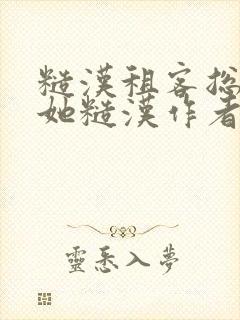 糙漢租客總
她糙漢作者
靈悉入夢